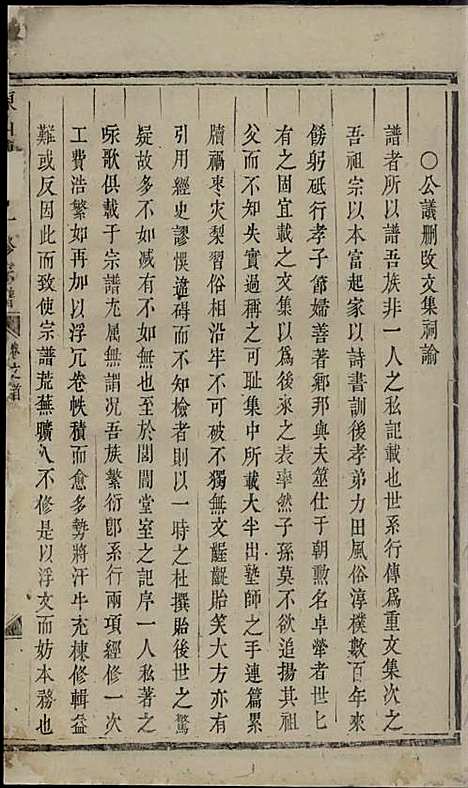 〇公議刪改文集祠諭
譜者所以譜吾族非一人之私記載也世系行傳爲重文集次之
吾祖宗以本富起家以詩書訓後孝弟力田風俗淳樸數百年來
飭躬砥行孝子節婦善著鄉邦與夫筮仕于朝勲名卓犖者世匕
有之固宜載之文集以爲後來之表率然子孫莫不欲追揚其祖
父而不知失實過稱之可耻集中所載大半出塾師之手連篇累
牘禍枣灾梨習俗相沿牢不可破不獨無文齷齪胎笑大方亦有
引用經史謬悞違碍而不知檢者則以一時之杜撰貽後世之驚
疑故多不如減有不如無也至於閎閣堂室之記序一人私著之
咏歌俱載于宗譜尢属無謂况吾族繁衍卽系行兩項經修一次
工費浩繁如再加以浮冗卷帙積而愈多勢將汗牛充棟修輯益
難或反因此而致使宗譜荒蕪曠久不修是以浮文而妨本務也
卷之首